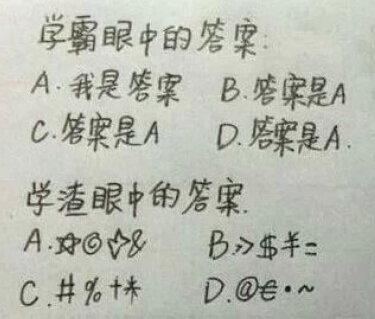 学霸眼中的答案:
A.我是答案 B.答案是A
C.答案是A D.答案是A.
学渣眼中的答案.
A.✡◎☆& B.>>$羊=
C.#%+* D.@€·~